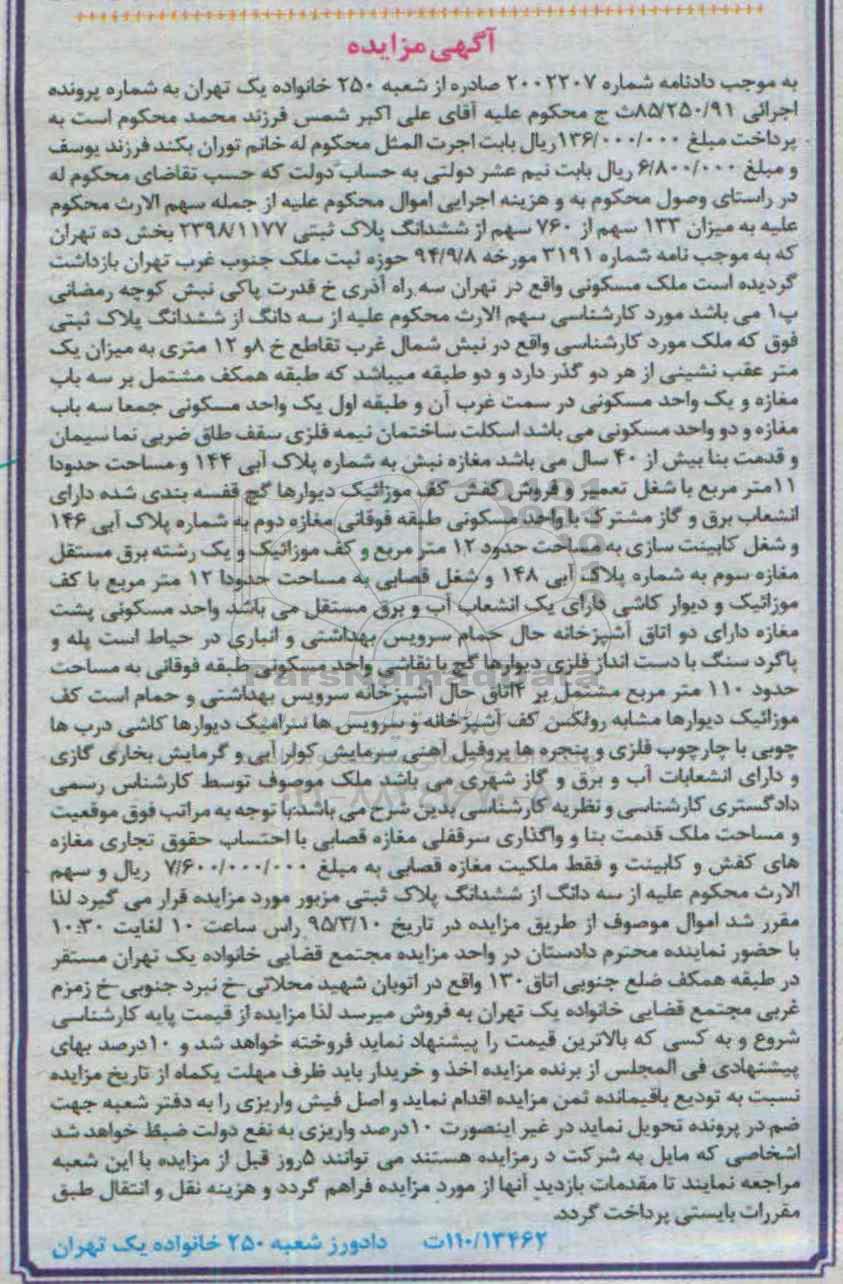 آگهی مزایده
به موجب دادنامه شماره ۲۰۰۲۲۰۷ صادره از شعبه ۲۵۰ خانواده یک تهران به شماره پرونده
اجرائی ۸۵/۲۵۰/۹۱ث ج محکوم علیه آقای علی اکبر شمس فرزند محمد محکوم است به
پرداخت مبلغ ۱۳۶/۰۰۰/۰۰۰ریال بابت اجرت المثل محکوم له خانم توران بکند فرزند یوسف
و مبلغ ۶/۸۰۰/۰۰۰ ریال بابت نیم عشر دولتی به حساب دولت که حسب تقاضای محکوم له
در راستای وصول محکوم به و هزینه اجرایی اموال محکوم علیه از جمله سهم الارث محکوم
علیه به میزان ۱۳۳ سهم از ۷۶۰ سهم از ششدانگ پلاک ثبتی ۲۳۹۸/۱۱۷۷ بخش ده تهران
که به موجب نامه شماره ۳۱۹۱ مورخه ۹۴/۹/۸ حوزه ثبت ملک جنوب غرب تهران بازداشت
گردیده است ملک مسکونی واقع در تهران سه راه آذری خ قدرت پاکی نبش کوچه رمضانی
پ۱ می باشد مورد کارشناسی سهم الارث محکوم علیه از سه دانگ از ششدانگ پلاک ثبتی
فوق که ملک مورد کارشناسی واقع در نبش شمال غرب تقاطع خ ۸و ۱۲ متری به میزان یک
متر عقب نشینی از هر دو گذر دارد و دو طبقه میباشد که طبقه همکف مشتمل بر سه باب
مغازه و یک واحد مسکونی در سمت غرب آن و طبقه اول یک واحد مسکونی جمعا سه باب
مغازه و دو واحد مسکونی می باشد اسکلت ساختمان نیمه فلزی سقف طاق ضربی نما سیمان
و قدمت بنا بیش از ۴۰ سال می باشد مغازه نبش به شماره پلاک آبی ۱۴۴ و مساحت حدودا
۱۱متر مربع با شغل تعمیر و فروش کفش کف موزائیک دیوارها گچ قفسه بندی شده دارای
انشعاب برق و گاز مشترک با واحد مسکونی طبقه فوقانی مغازه دوم به شماره پلاک آبی ۱۴۶
و شغل کابینت سازی به مساحت حدود ۱۲ متر مربع و کف موزائیک و یک رشته برق مستقل
مغازه سوم به شماره پلاک آبی ۱۴۸ و شغل قصابی به مساحت حدودا ۱۲ متر مربع با کف
موزائیک و دیوار کاشی دارای یک انشعاب آب و برق مستقل می باشد واحد مسکونی پشت
مغازه دارای دو اتاق آشپزخانه حال حمام سرویس بهداشتی و انباری در حیاط است پله و
پاگرد سنگ با دست انداز فلزی دیوارها گچ با نقاشی واحد مسکونی طبقه فوقانی به مساحت
حدود ۱۱۰ متر مربع مشتمل بر ۴اتاق حال آشپزخانه سرویس بهداشتی و حمام است کف
موزائیک دیوارها مشابه رولکس کف آشپزخانه و سرویس ها سرامیک دیوارها کاشی درب ها
چوبی با چارچوب فلزی و پنجره ها پروفیل آهنی سرمایش کولر آبی و گرمایش بخاری گازی
و دارای انشعابات آب و برق و گاز شهری می باشد ملک موصوف توسط کارشناس رسمی
دادگستری کارشناسی و نظریه کارشناسی بدین شرح می باشد:با توجه به مراتب فوق موقعیت
و مساحت ملک قدمت بنا و واگذاری سرقفلی مغازه قصابی با احتساب حقوق تجاری مغازه
های کفش و کابینت و فقط ملکیت مغازه قصابی به مبلغ ۷/۶۰۰/۰۰۰/۰۰۰ ریال و سهم
الارث محکوم علیه از سه دانگ از ششدانگ پلاک ثبتی مزبور مورد مزایده قرار می گیرد لذا
مقرر شد اموال موصوف از طریق مزایده در تاریخ ۹۵/۳/۱۰ راس ساعت ۱۰ لغایت ۱۰:۳۰
با حضور نماینده محترم دادستان در واحد مزایده مجتمع قضایی خانواده یک تهران مستقر
در طبقه همکف ضلع جنوبی اتاق۱۳۰ واقع در اتوبان شهید محلاتی-خ نبرد جنوبی-خ زمزم
غربی مجتمع قضایی خانواده یک تهران به فروش میرسد لذا مزایده از قیمت پایه کارشناسی
شروع و به کسی که بالاترین قیمت را پیشنهاد نماید فروخته خواهد شد و ۱۰درصد بهای
پیشنهادی فی المجلس از برنده مزایده اخذ و خریدار باید ظرف مهلت یکماه از تاریخ مزایده
نسبت به تودیع باقیمانده ثمن مزایده اقدام نماید و اصل فیش واریزی را به دفتر شعبه جهت
ضم در پرونده تحویل نماید در غیر اینصورت ۱۰درصد واریزی به نفع دولت ضبط خواهد شد
اشخاصی که مایل به شرکت د رمزایده هستند می توانند ۵روز قبل از مزایده با این شعبه
مراجعه نمایند تا مقدمات بازدید آنها از مورد مزایده فراهم گردد و هزینه نقل و انتقال طبق
مقررات بایستی پرداخت گردد.
۱۱۰/۱۳۴۶۲ت دادورز شعبه ۲۵۰ خانواده یک تهران
ParsNamadData